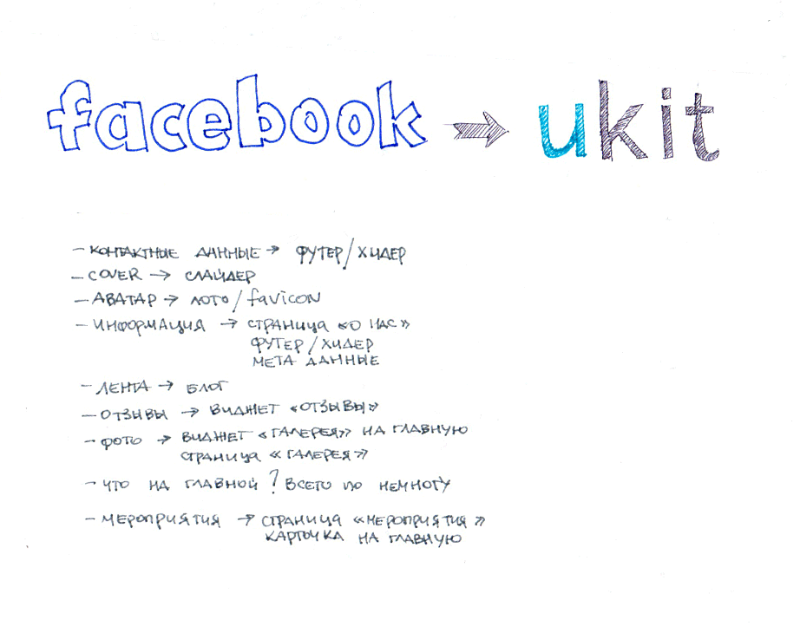 facebook → ukit
- КОНТАКТНЫЕ ДАННЫЕ → ФУТЕР/ХИДЕР
- COVER → СЛАЙДЕР
- АВАТАР → ЛОГО/favicon
- ИНФОРМАЦИЯ → СТРАНИЦА «О НАС»
ФУТЕР/ХИДЕР
МЕТА ДАННЫЕ
- ЛЕНТА → БЛОГ
- ОТЗЫВЫ → ВИДЖЕТ «ОТЗЫВЫ»
- ФОТО → ВИДЖЕТ «ГАЛЕРЕЯ» НА ГЛАВНУЮ
СТРАНИЦА «ГАЛЕРЕЯ»
- ЧТО НА ГЛАВНОЙ? ВСЕГО ПО НЕМНОГУ
- МЕРОПРИЯТИЯ → СТРАНИЦА «МЕРОПРИЯТИЯ»
КАРТОЧКА НА ГЛАВНУЮ